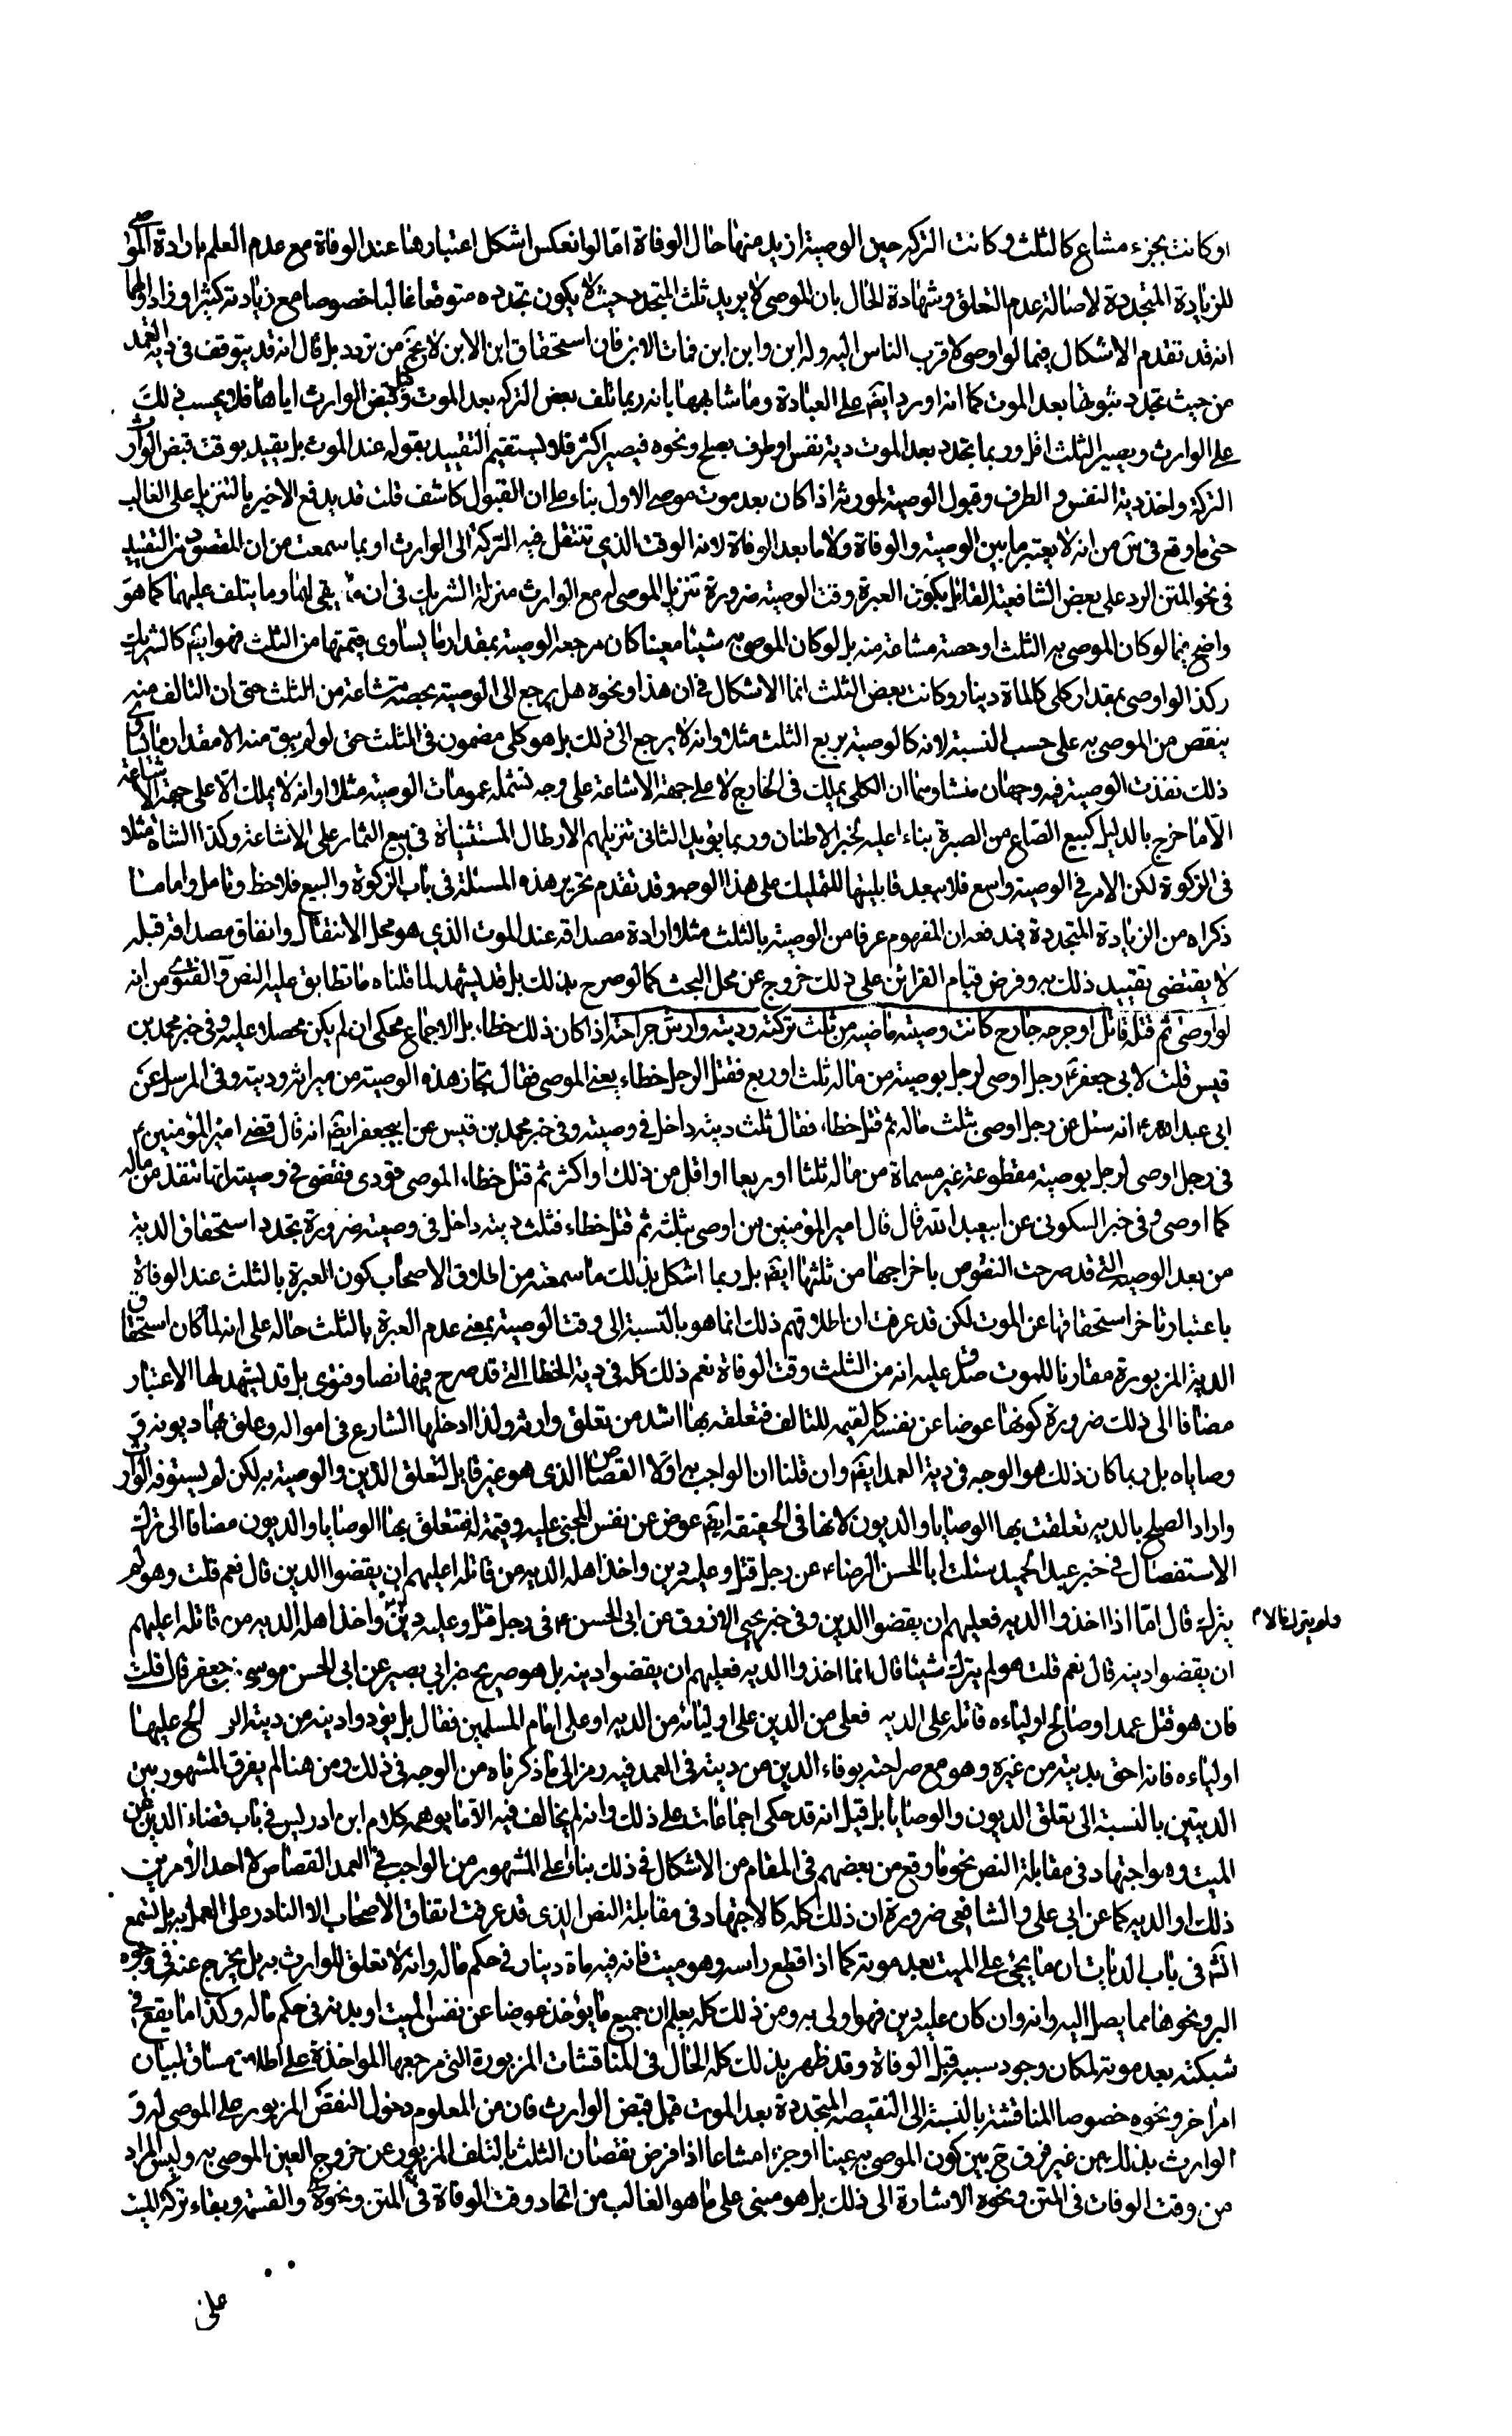 او كانت بجزء مشاع كالثلث و كانت التركه حين الوصية ازيد منها حال الوفاة امّا لو انعكس اشكل اعتبارها عند الوفاة مع عدم العلم بارادة الموصى
للزيادة المتجددة لاصالة عدم التعلق و شهادة الحال بان الموصى لا يريد ثلث المتجدد حيث لا يكون تجدده متوقعا غالبا خصوصا مع زيادته كثيرا و زاد اولهما
انه قد تقدم الاشكال فيما لو اوصى لاقرب الناس اليه و له ابن و ابن ابن فمات الابن فان استحقاق ابن الابن لا يخ من تردد بل قال انه قد يتوقف فى دية العمد
من حيث تجدد ثبوتها بعد الموت كما انه اورد ايضم على العبادة و ما شابهها بانه ربما تلف بعض التركه بعد الموت و قبل قبض الوارث اياها فلا يحسب ذلك
على الوارث و يصير الثلث اقل و ربما يتجدد بعد الموت دية نفس او طرف بصلح و نحوه فيصير اكثر فلا يستقيم التقييد بقوله عند الموت بل يقيد بوقت قبض الوارث
التركة و اخذ دية النفس و الطرف و قبول الوصية لمورثه اذا كان بعد موت موصى الاول بناء على ان القبول كاشف قلت قد يدفع الاخير بالتنزيل على الغالب
حتى ما وقع فى س من انه لا يعتبر ما بين الوصية و الوفاة و لا ما بعد الوفاة لانه الوقت الذي تنتقل فيه التركة الى الوارث او بما سمعت من ان المقصود من التقييد
فى نحو المتن الرد على بعض الشافعية القائل بكون العبرة وقت الوصية ضرورة تنزيل الموصى له مع الوارث منزلة الشريك فى ان ما يبقى لهما و ما يتلف عليهما كما هو
واضح فيما لو كان الموصى به الثلث او حصة مشاعة منه بل لو كان الموصى به شيئا معينا كان مرجعه الوصية بمقدار ما يساوى قيمتها من الثلث فهو ايضم كالشريك
و كذا لو اوصى بمقدار كلى كالماة دينار و كانت بعض الثلث انما الاشكال فى ان هذا و نحوه هل يرجع الى الوصية بحصة مشاعة من الثلث حتى ان التالف منه
ينقص من الموصى به على حسب النسبة لانه كالوصية بربع الثلث مثلا و انه لا يرجع الى ذلك بل هو كلى مضمون فى الثلث حتى لو لم يبق منه الا مقدار ما يساوى
ذلك نفذت الوصية فيه وجهان منشاوهما ان الكلى يملك فى الخارج لا على جهة الاشاعة على وجه تشمله عمومات الوصية مثلا او انه لا يملك الّا على جهة الاشاعة
الّا ما خرج بالدليل كبيع الصاع من الصبرة بناء عليه لخبر الاطنان و ربما يؤيد الثانى تنزيلهم الارطال المستثناة فى بيع الثمار على الاشاعة و كذا الشاة مثلا
فى الزكوة لكن الامر فى الوصية واسع فلا يبعد قابليتها للتمليك على هذا الوجه و قد تقدم تحرير هذه المسئلة فى باب الزكوة و البيع فلاحظ و تامل و اما ما
ذكراه من الزيادة المتجددة يندفعه ان المفهوم عرفا من الوصية بالثلث مثلا ارادة مصداقه عند الموت الذي هو محل الانتقال و اتفاق مصداقه قبله
لا يقتضى تقييد ذلك به و فرض قيام القرائن على ذلك خروج عن محل البحث كما لو صرح بذلك بل قد يشهد لما قلناه ما تطابق عليه النص و الفتوى من انه
لو اوصى ثم قتله قاتل او جرحه جارح كانت وصيته ماضيه من ثلث تركته و ديته و ارش جراحته اذا كان ذلك خطاء، بل الاجماع محكى ان لم يكن محصلا عليه و فى خبر محمد بن
قيس قلت لابى جعفر ع رجل اوصى لرجل بوصية من ماله ثلث او ربع فقتل الرجل خطاء يعنى الموصى فقال يجاز هذه الوصية من ميراثه و ديته و فى المرسل عن
ابى عبد الله ع انه سئل عن رجل اوصى بثلث ماله ثم قتل خطاء، فقال ثلث ديته داخل فى وصيته و فى خبر محمد بن قيس عن ابيجعفر ايضم انه قال قضى امير المؤمنين ع
فى رجل اوصى لرجل بوصية مقطوعة غير مسماة من ماله ثلثا او ربعا او اقل من ذلك او اكثر ثم قتل خطاء، الموصى فودى فقضى فى وصيته انها تنفذ من ماله
كما اوصى و فى خبر السكونى عن ابيعبد الله قال قال امير المؤمنين من اوصى بثلثه ثم قتل خطاء فثلث ديته داخل فى وصيته ضرورة تجدد استحقاق الدية
من بعد الوصية التى قد صرحت النصوص باخراجها من ثلثها ايضم بل ربما اشكل بذلك ما سمعته من اطلاق الاصحاب كون العبرة بالثلث عند الوفاة
باعتبار تاخر استحقاقها عن الموت لكن قد عرفت ان اطلاقهم ذلك انما هو بالنسبة الى وقت الوصية بمعنى عدم العبرة بالثلث حاله على انه لما كان استحقاق
الدية المزبورة مقارنا للموت صدق عليه انه من الثلث وقت الوفاة نعم ذلك كله فى دية الخطا التى قد صرح فيها نصا و فتوى بل قد يشهد لها الاعتبار
مضافا الى ذلك ضرورة كونها عوضا عن نفسه كالقيمه للتالف فتعلقه بها اشد من تعلق وارثه و لذا ادخلها الشارع فى امواله و علق بها ديونه و
وصاياه بل ربما كان ذلك هو الوجه فى دية العمد ايضم و ان قلنا ان الواجب به اولا القصاص الذى هو غير قابل لتعلق الدين و الوصية به لكن لو يستوفه الوارث
و اراد الصلح بالديه تعلقت بها الوصايا و الديون لانها فى الحقيقه ايضم عوض عن نفس المجنى عليه و قيمة له فتتعلق بها الوصايا و الديون مضافا الى ترك
الاستفصال فى خبر عبد الحميد سئلت ابا الحسن الرضاء ع عن رجل قتل و عليه دين و اخذ اهله الديه من قاتله اعليهم ان يقضوا الدين قال نعم قلت و هو لم
يترك قال امّا اذا اخذوا الديه فعليهم ان يقضوا الدين و فى خبر يحيى الازرق عن ابى الحسن ع فى رجل قتل و عليه دين و اخذ اهله الديه من قاتله اعليهم
و لم يترك مالا م
ان يقضوا دينه قال نعم قلت هو لم يترك شيئا قال انما اخذوا الديه فعليهم ان يقضوا دينه بل هو صريح خبر ابى بصير عن ابى الحسن موسى بن جعفر قال قلت
فان هو قتل عمدا و صالح اولياءه قاتله على الديه فعلى من الدين على اوليائه من الديه او على امام المسلمين فقال بل يؤدوا دينه من ديته الـ لح عليها
اولياءه فانه احق بديته من غيره و هو مع صراحته بوفاء الدين من ديته فى العمد فيه رمز الى ما ذكرناه من الوجه فى ذلك و من هنا لم يفرق المشهور بين
الديتين بالنسبة الى تعلق الديون و الوصايا بل قيل انه قد حكى اجماعات على ذلك و انه لم يخالف فيه الّا ما يوهمه كلام ابن ادريس فى باب قضاء الدين عن
الميت و هو اجتهاد فى مقابلة النص نحو ما وقع من بعضهم فى المقام من الاشكال فى ذلك بناء على المشهور من الواجب فى العمد القصاص لا احد الامرين
ذلك او الديه كما عن ابى على و الشافعى ضرورة ان ذلك كله كالاجتهاد فى مقابلة النص الذى قد عرفت اتفاق الاصحاب الا النادر على العمل به بل تسمع
انشم فى باب الديات ان ما يجنى على الميت بعد موته كما اذا قطع راسه و هو ميت فانه فيه ماة دينار فى حكم ماله و انه لا تعلق للوارث به بل يخرج عنه فى وجوه
البر و نحوها مما يصل اليه و انه و ان كان عليه دين فهو اولى به و من ذلك كله يعلم ان جميع ما يؤخذ عوضا عن نفس الميت او بدنه فى حكم ماله و كذا ما يقع فى
شبكته بعد موته لمكان وجود سببه قبل الوفاة و قد ظهر بذلك كله الحال فى المناقشات المزبورة التى مرجعها المواخذة على اطلاق مساق لبيان
امر اخر و نحوه خصوصا المناقشة بالنسبة الى النقيصه المتجددة بعد الموت قبل قبض الوارث فان من المعلوم دخول النقص المزبور على الموصى له و
الوارث بذلك من غير فرق ح بين كون الموصى به عينا او جزءا مشاعا اذا فرض نقصان الثلث بالتلف المزبور عن خروج العين الموصى به و ليس المراد
من وقت الوفات فى المتن و نحوه الاشارة الى ذلك بل هو مبنى على ما هو الغالب من اتحاد وقت الوفاة فى المتن و نحوه و القسمة و بقاء تركة الميت
على